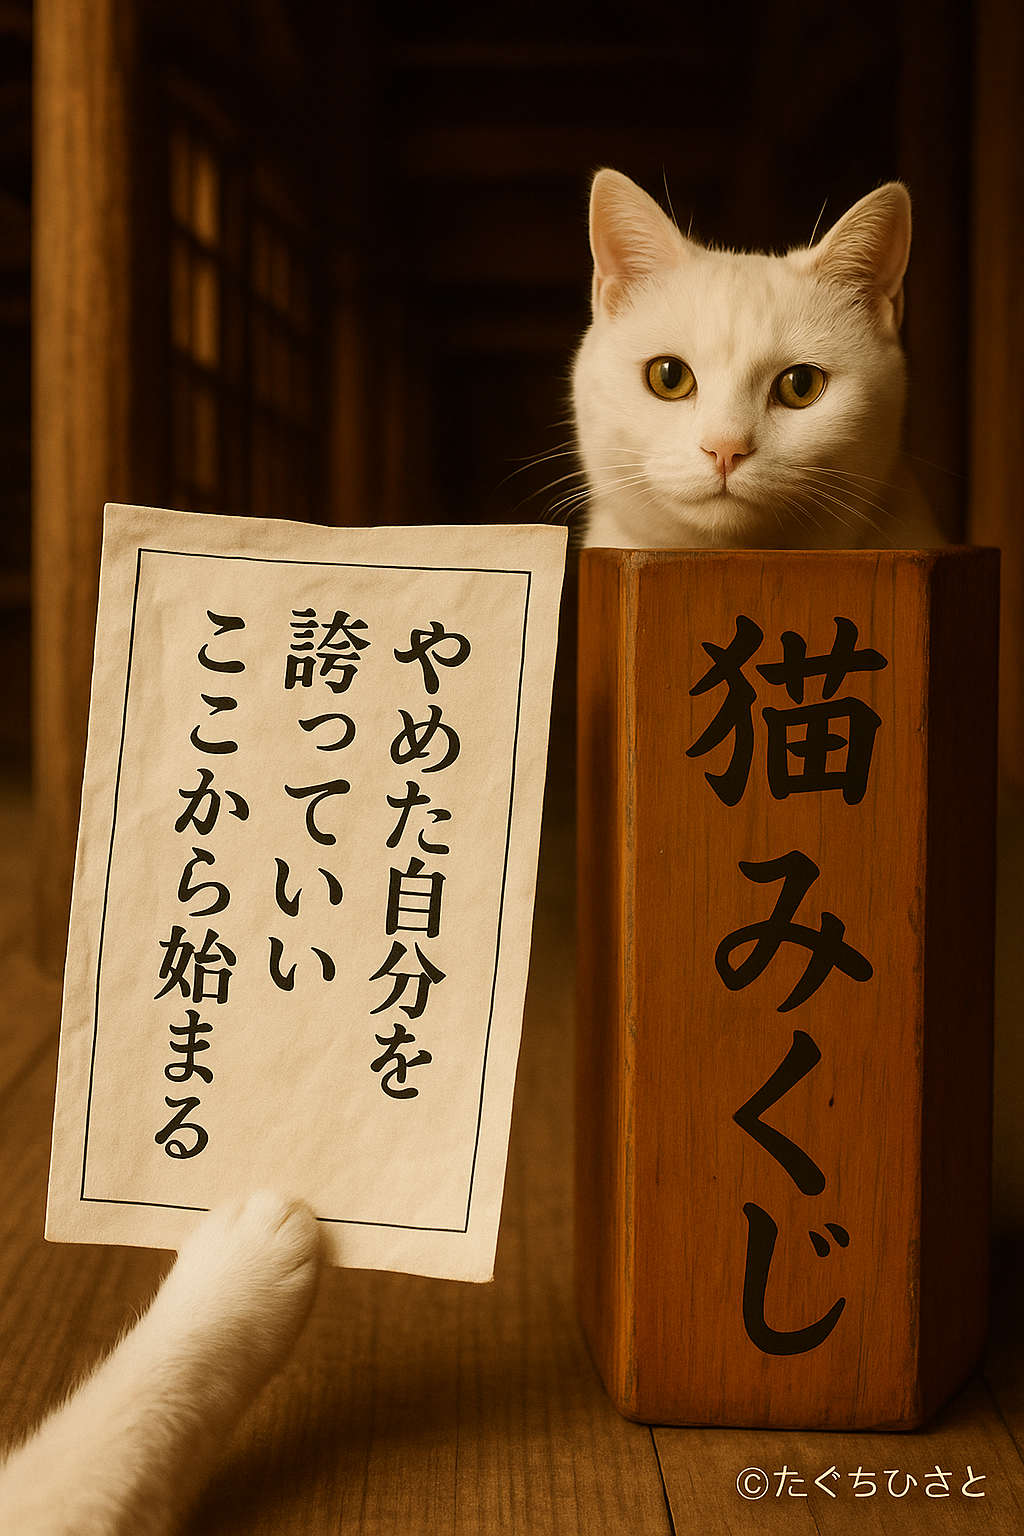 やめた自分を
誇っていい
ここから始まる
猫みくじ
©たぐちひさと